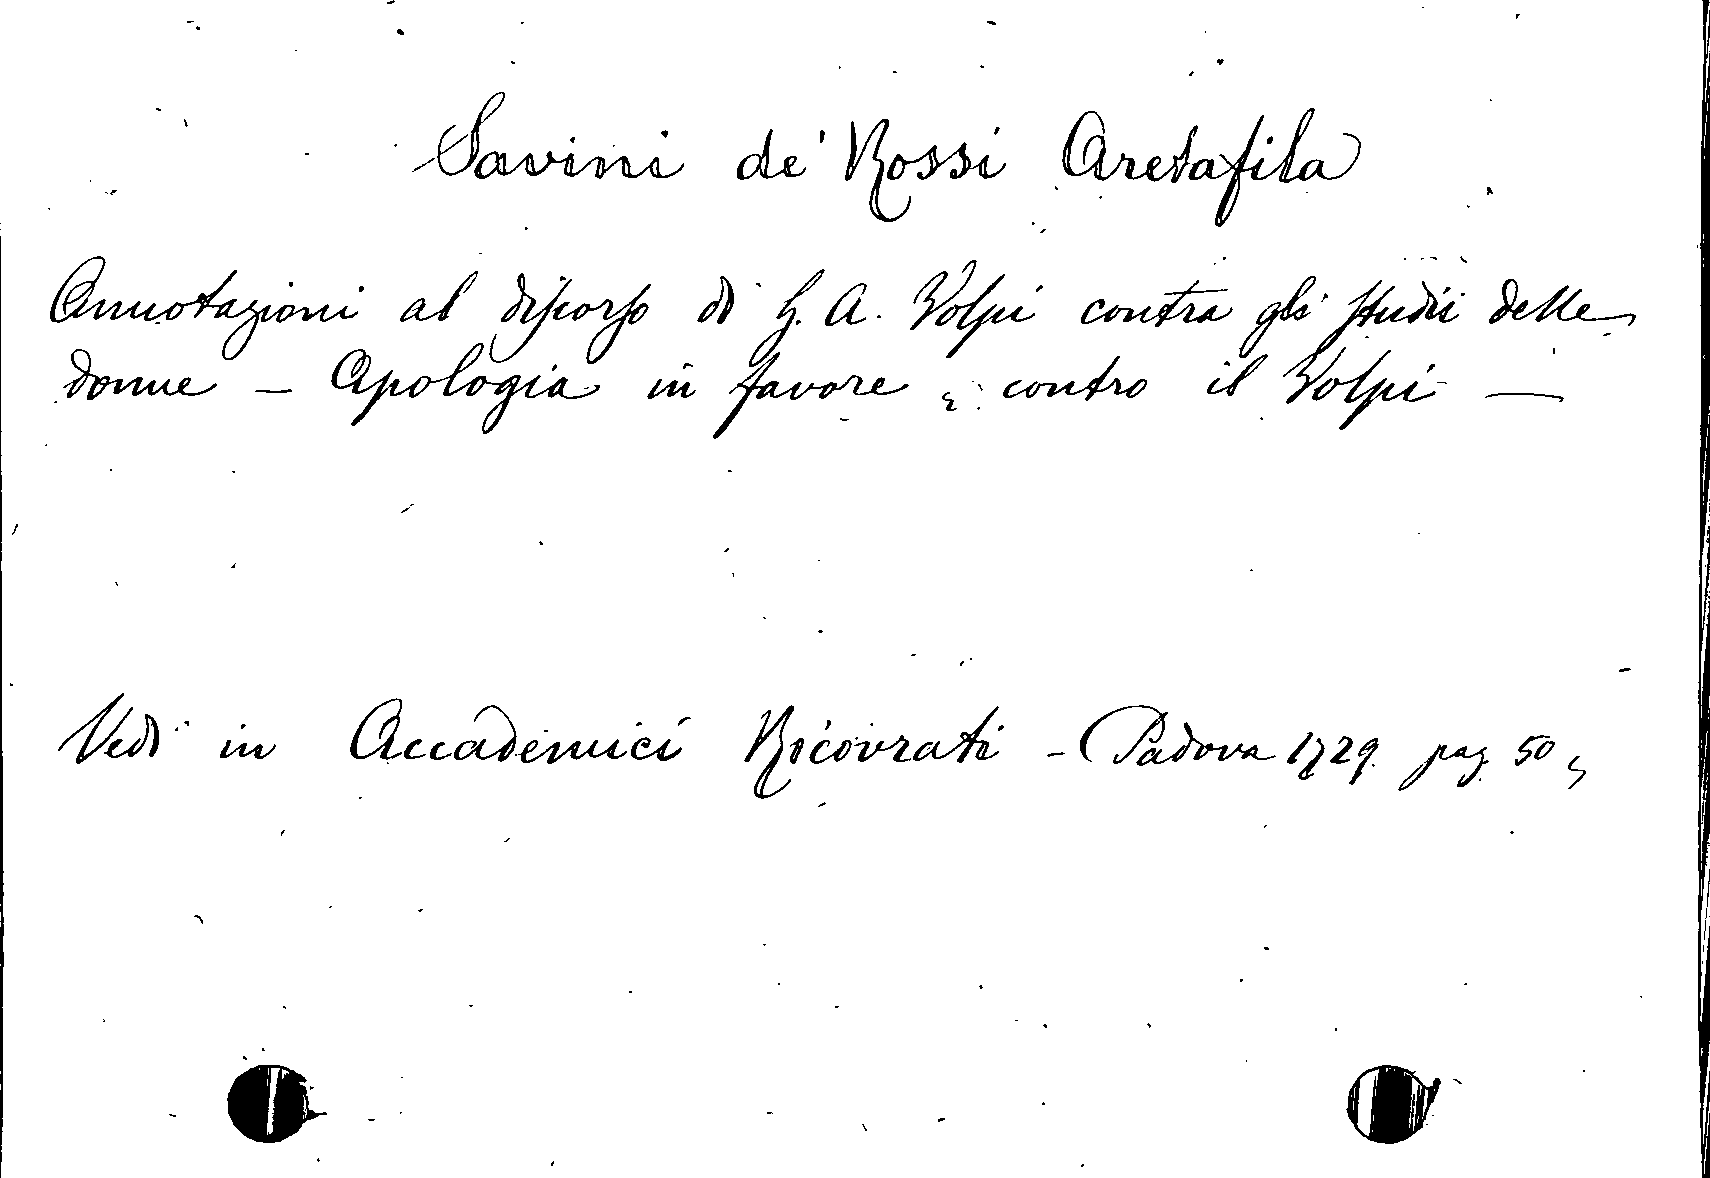 Savini de' Rossi Aretafila
Annotazioni al discorso di G. A. Volpi contra gli studii delle
donne – Apologia in favore e contro il Volpi —
Vedi in Accademici Ricovrati – (Padova 1729. pag. 50,